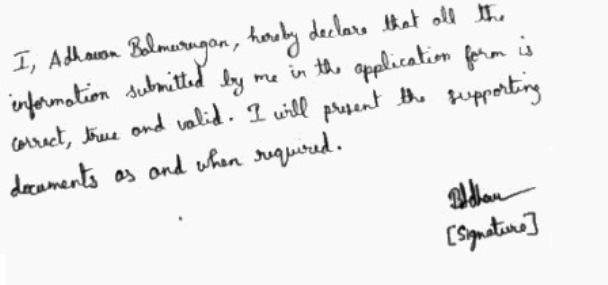 I, Adhavan Balmurugan, hereby declare that all the
information submitted by me in the application form is
correct, true and valid. I will present the supporting
documents as and when required.
[Signature]